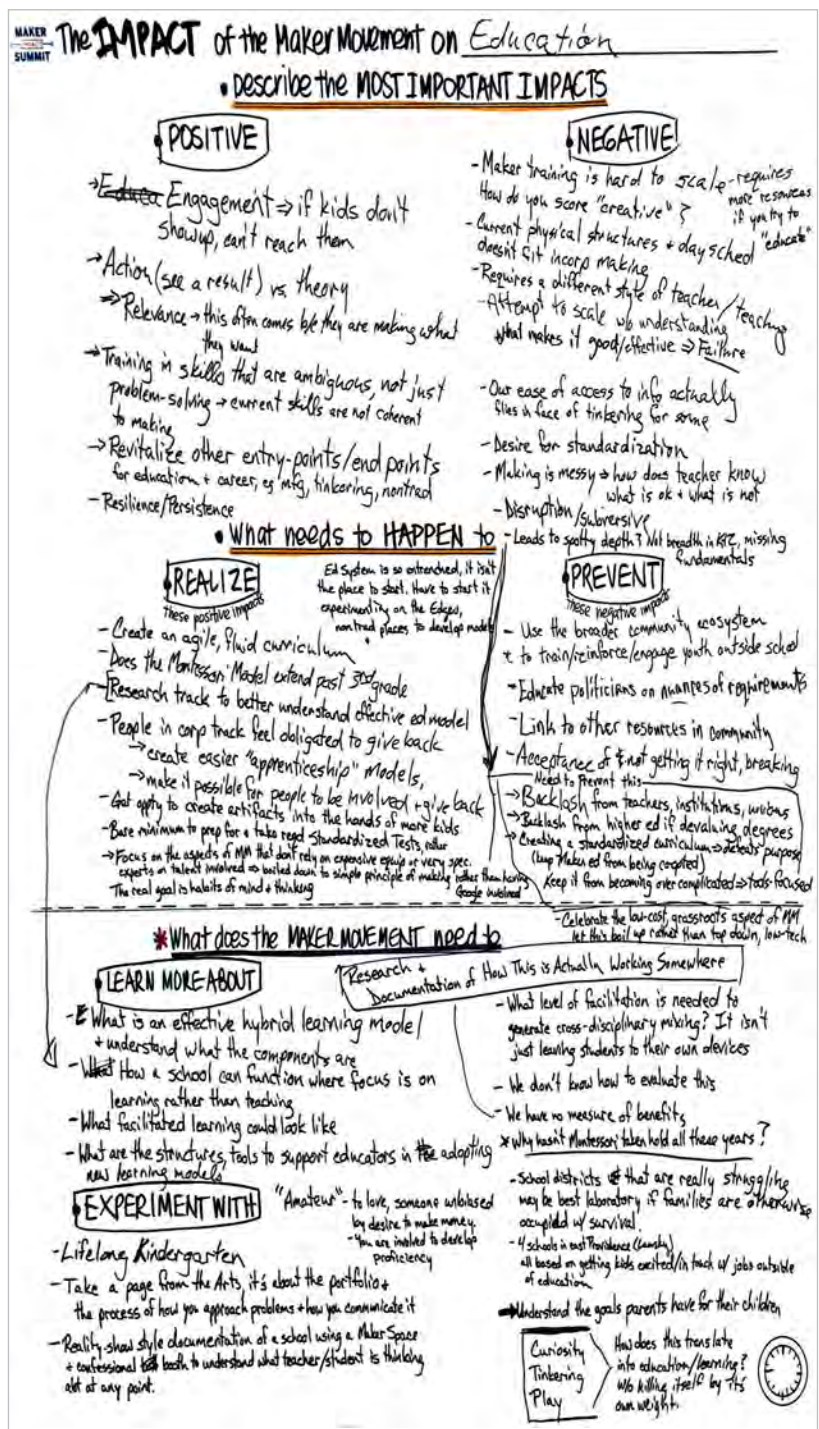 MAKER
SUMMIT
The IMPACT of the Maker Movement on Education
• Describe the MOST IMPORTANT IMPACTS
• POSITIVE
→ Educa Engagement ⇒ if kids don't
show up, can't reach them
→ Action (see a result) vs. theory
⇒ Relevance → this often comes b/c they are making what
they want
→ Training in skills that are ambiguous, not just
problem-solving → current skills are not coherent
to making
→ Revitalize other entry-points/end points
for education + career, eg mfg, tinkering, nontrad
- Resilience/Persistence
• NEGATIVE!
- Maker training is hard to scale - requires
more resources
if you try to
"educate"
How do you score "creative"?
- Current physical structures + day sched
doesn't fit incorp making
- Requires a different style of teacher/teaching
- Attempt to scale w/o understanding
what makes it good/effective ⇒ Failure
- Our ease of access to info actually
flies in face of tinkering for some
- Desire for standardization
- Making is messy → how does teacher know
what is ok + what is not
- Disruption/subversive
- Leads to spotty depth? Not breadth in K12, missing
fundamentals
• What needs to HAPPEN to
• REALIZE
these positive impacts
Ed System is so entrenched, it isn't
the place to start. Have to start it
experimenting on the Edges,
nontrad places to develop models
- Create an agile, fluid curriculum
- Does the Montessori Model extend past 3rd grade
- Research track to better understand effective ed model
- People in corp track feel obligated to give back
→ create easier "apprenticeship" models,
→ make it possible for people to be involved + give back
- Get oppty to create artifacts into the hands of more kids
- Bare minimum to prep for + take reqd Standardized Tests,
→ Focus on the aspects of MM that don't rely on expensive equip or very spec.
experts or talent involved ⇒ boiled down to simple principle of making rather than having
Google involved
The real goal is habits of mind + thinking
• PREVENT
these negative impacts
- Use the broader community ecosystem
to train/reinforce/engage youth outside school
- Educate politicians on nuances of requirements
- Link to other resources in community
- Acceptance of not getting it right, breaking
Need to Prevent this
→ Backlash from teachers, institutions, unions
→ Backlash from higher ed if devaluing degrees
→ Creating a standardized curriculum ⇒ defeats purpose
(keep Maker ed from being coopted)
Keep it from becoming over complicated ⇒ tools-focused
- Celebrate the low-cost, grassroots aspect of MM
let this boil up rather than top down, low-tech
* What does the MAKER MOVEMENT need to
• LEARN MORE ABOUT
Research +
Documentation of How This is Actually Working Somewhere
- What is an effective hybrid learning model
+ understand what the components are
- What How a school can function where focus is on
learning rather than teaching
- What facilitated learning could look like
- What are the structures, tools to support educators in the adopting
new learning models
- What level of facilitation is needed to
generate cross-disciplinary mixing? It isn't
just leaving students to their own devices
- We don't know how to evaluate this
- We have no measure of benefits
* Why hasn't Montessori taken hold all these years?
- School districts that are really struggling
may be best laboratory if families are otherwise
occupied w/ survival.
- 4 schools in east Providence
all based on getting kids excited/in touch w/ jobs outside
of education
→ Understand the goals parents have for their children
• EXPERIMENT WITH
"Amateur" - to love, someone unbiased
by desire to make money.
- You are involved to develop
proficiency
- Lifelong Kindergarten
- Take a page from the Arts, it's about the portfolio +
the process of how you approach problems + how you communicate it
- Reality-show style documentation of a school using a Maker Space
+ confessional booth to understand what teacher/student is thinking
abt at any point.
Curiosity
Tinkering
Play
How does this translate
into education/learning?
w/o killing itself by it's
own weight.